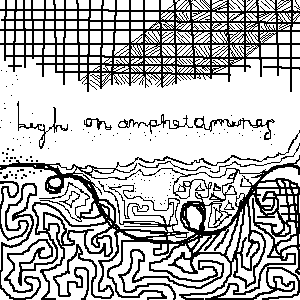 high on amphetamines